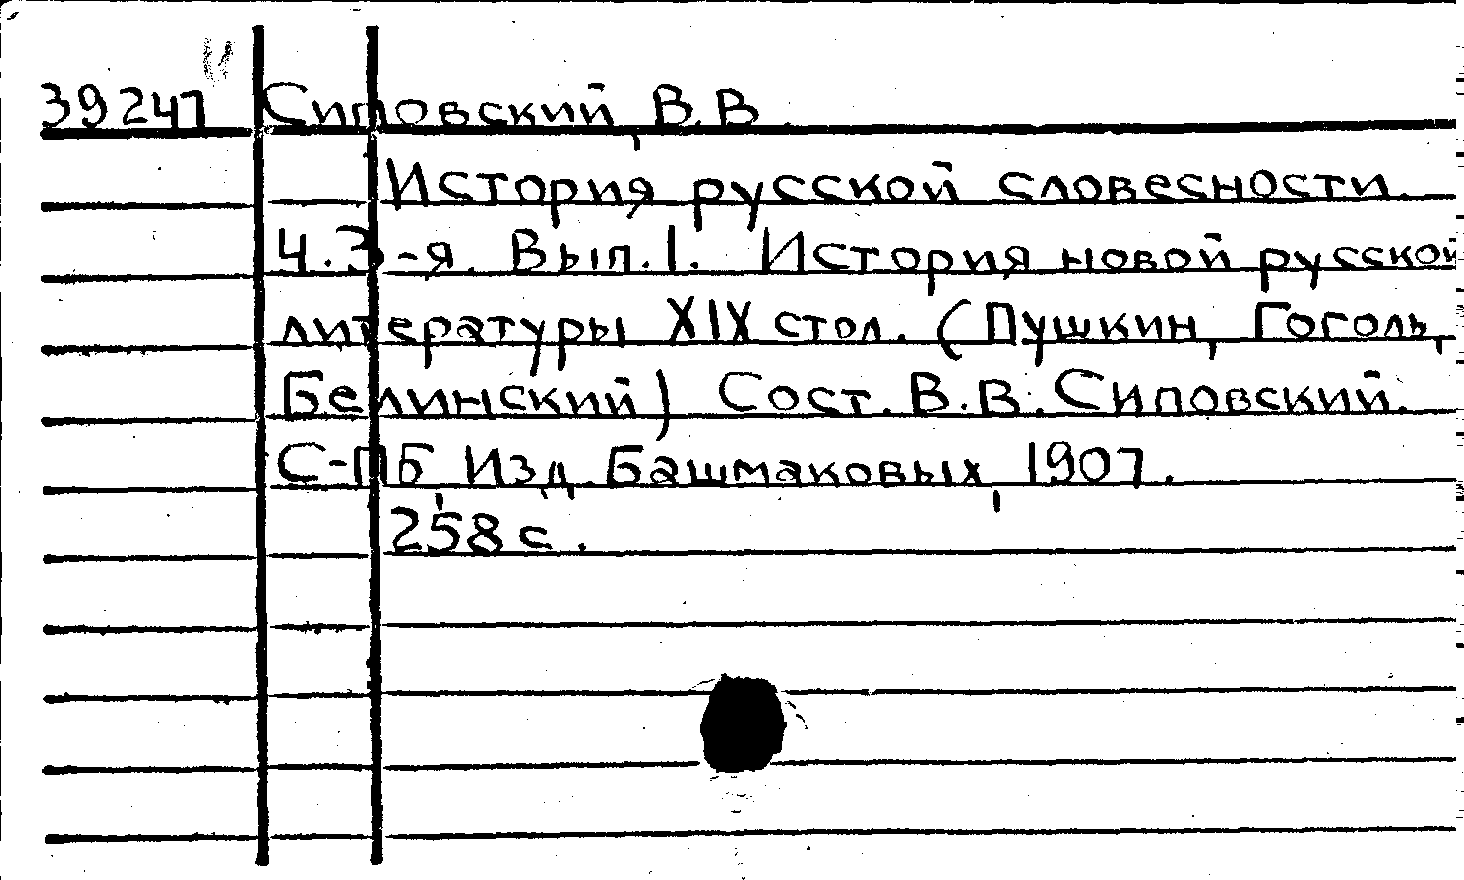 39247 Сиповский, В.В.
История русской словесности.
Ч.3-я. Вып.1. История новой русской
литературы XIX стол. (Пушкин, Гоголь,
Белинский) Сост. В.В. Сиповский.
С-ПБ, Изд. Башмаковых, 1907.
258 с.